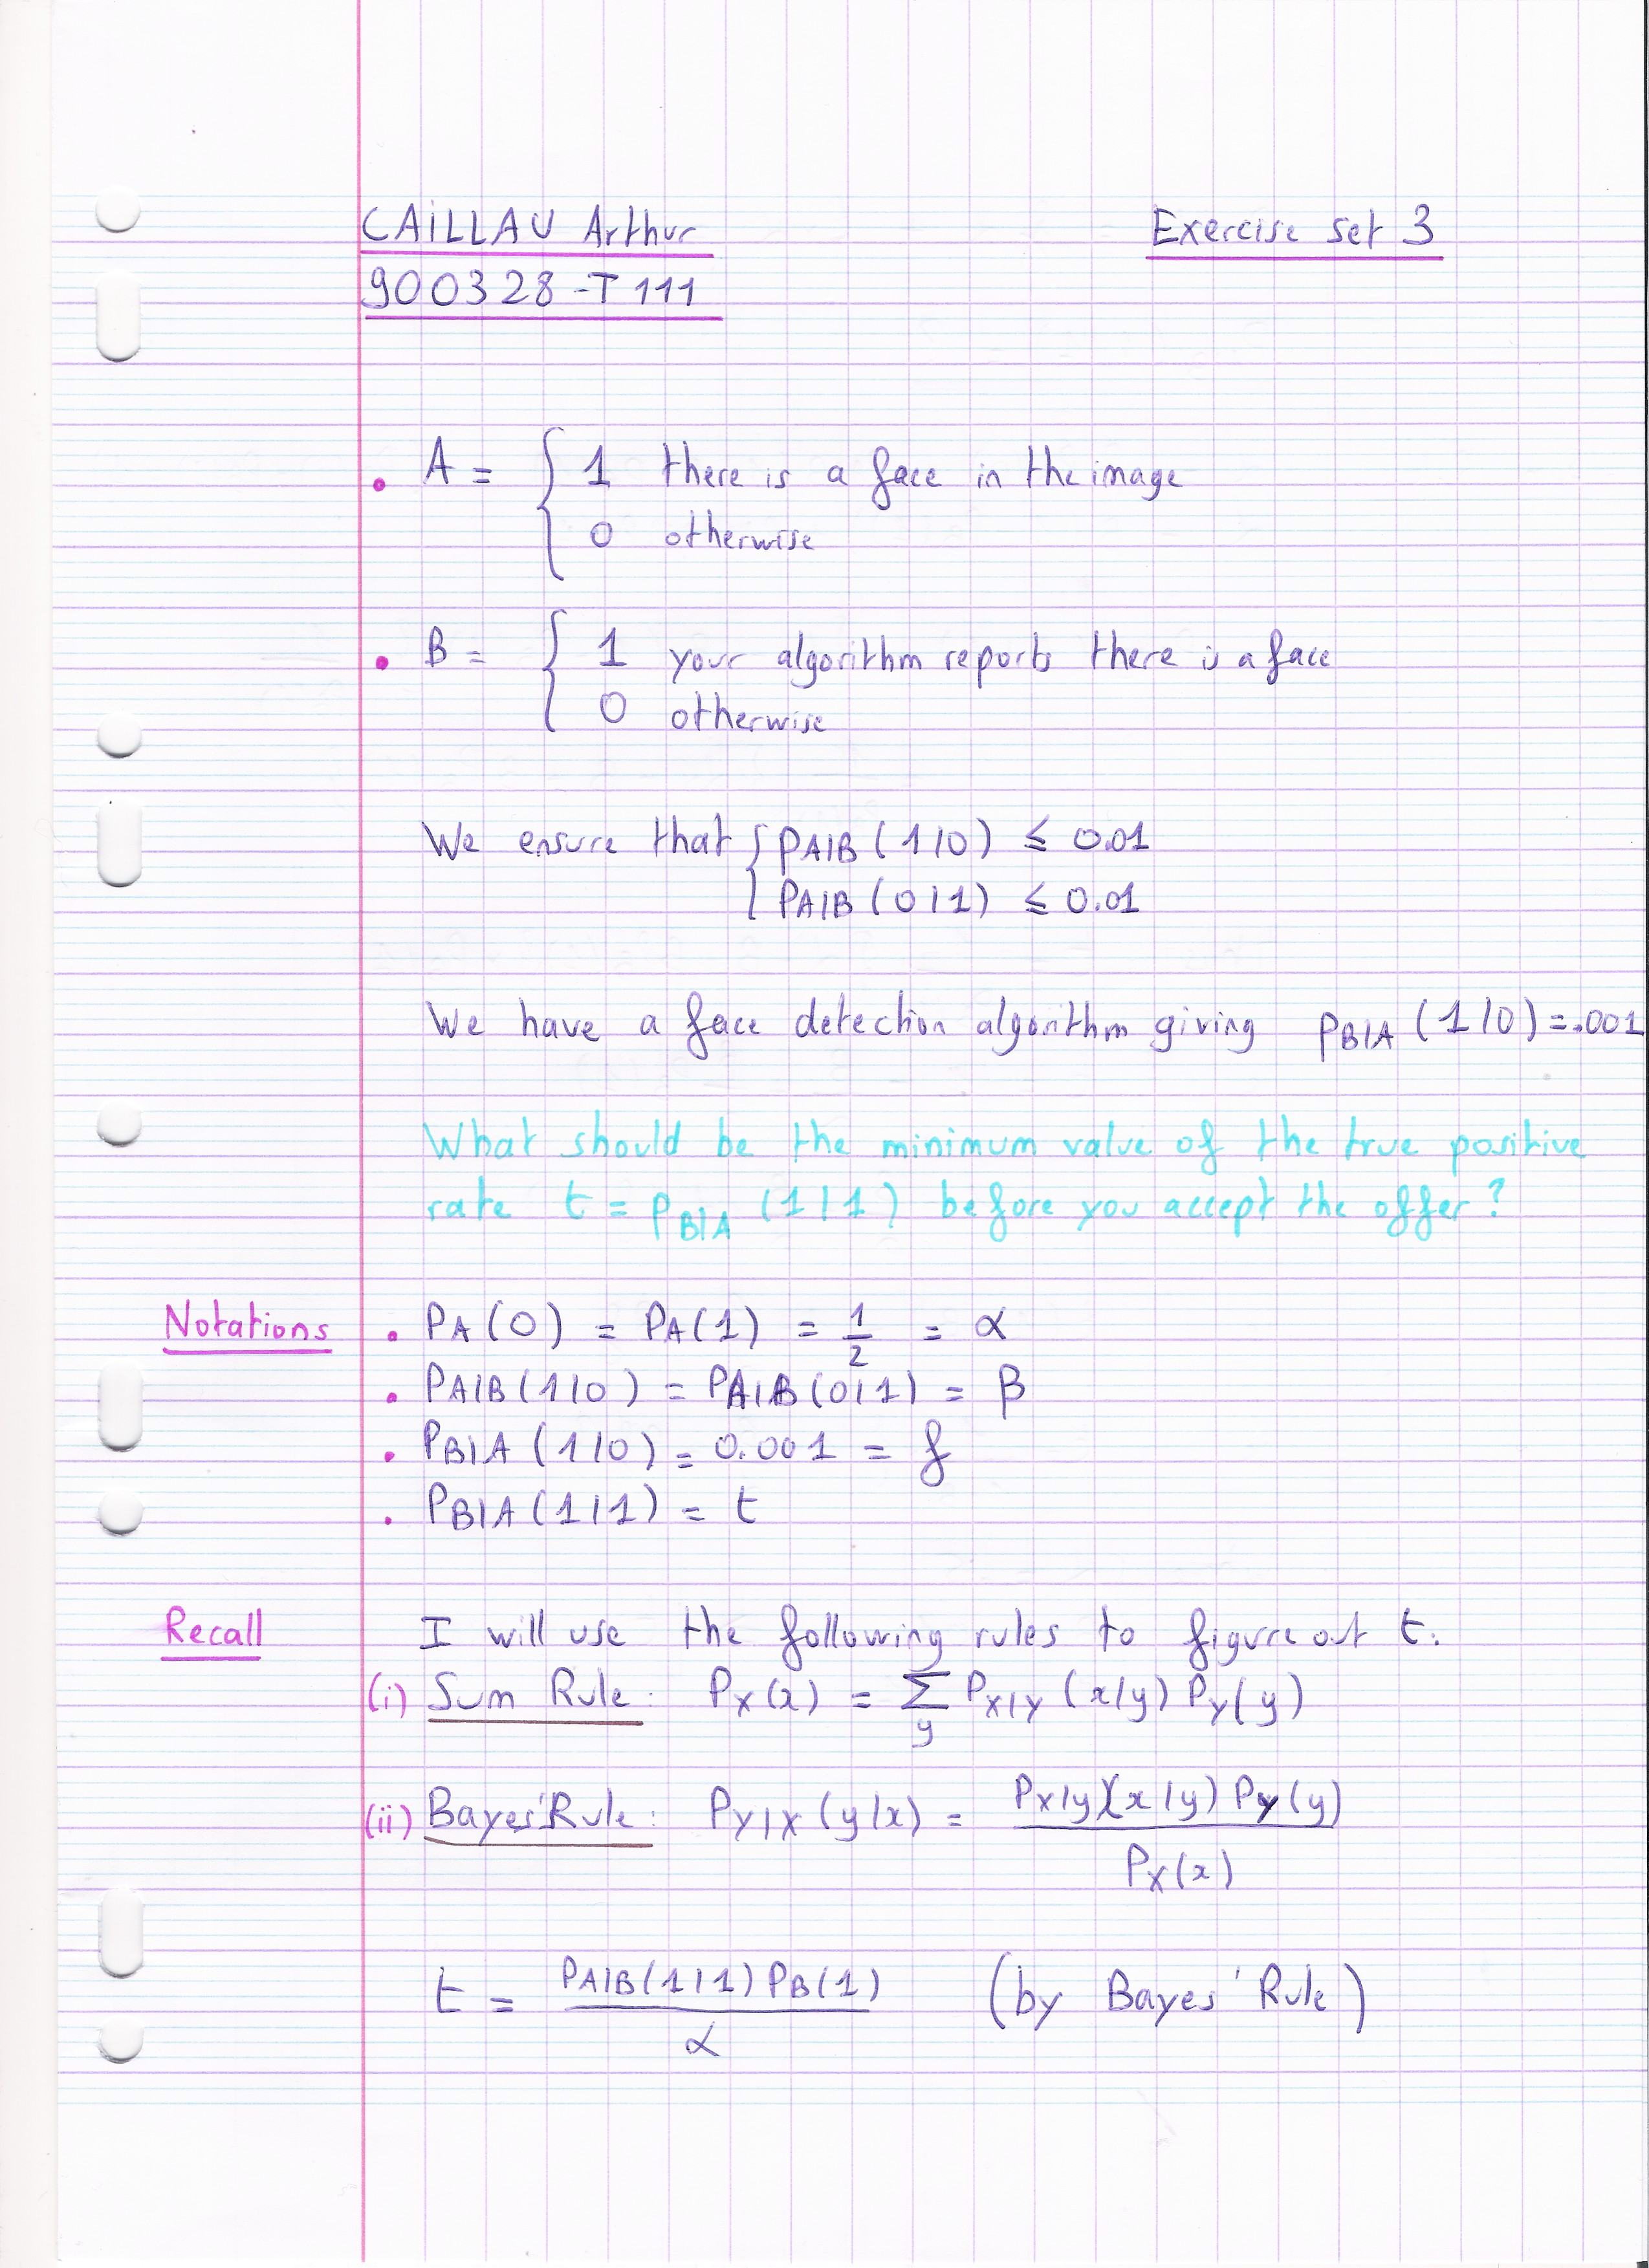 CAILLAU Arthur
Exercise set 3
900328-T111
• A = { 1 there is a face in the image
0 otherwise
• B = { 1 your algorithm reports there is a face
0 otherwise
We ensure that { PA|B (1|0) ≤ 0.01
PA|B (0|1) ≤ 0.01
We have a face detection algorithm giving PB|A (1|0) = .001
What should be the minimum value of the true positive
rate t = PB|A (1|1) before you accept the offer?
Notations • PA(0) = PA(1) = 1/2 = α
• PA|B(1|0) = PA|B(0|1) = β
• PB|A (1|0) = 0.001 = f
• PB|A (1|1) = t
Recall I will use the following rules to figure out t.
(i) Sum Rule: PX(x) = Σy PX|Y (x|y) PY(y)
(ii) Bayes' Rule: PY|X (y|x) = PX|y(x|y) PY(y) / PX(x)
t = PA|B(1|1) PB(1) / α (by Bayes' Rule)